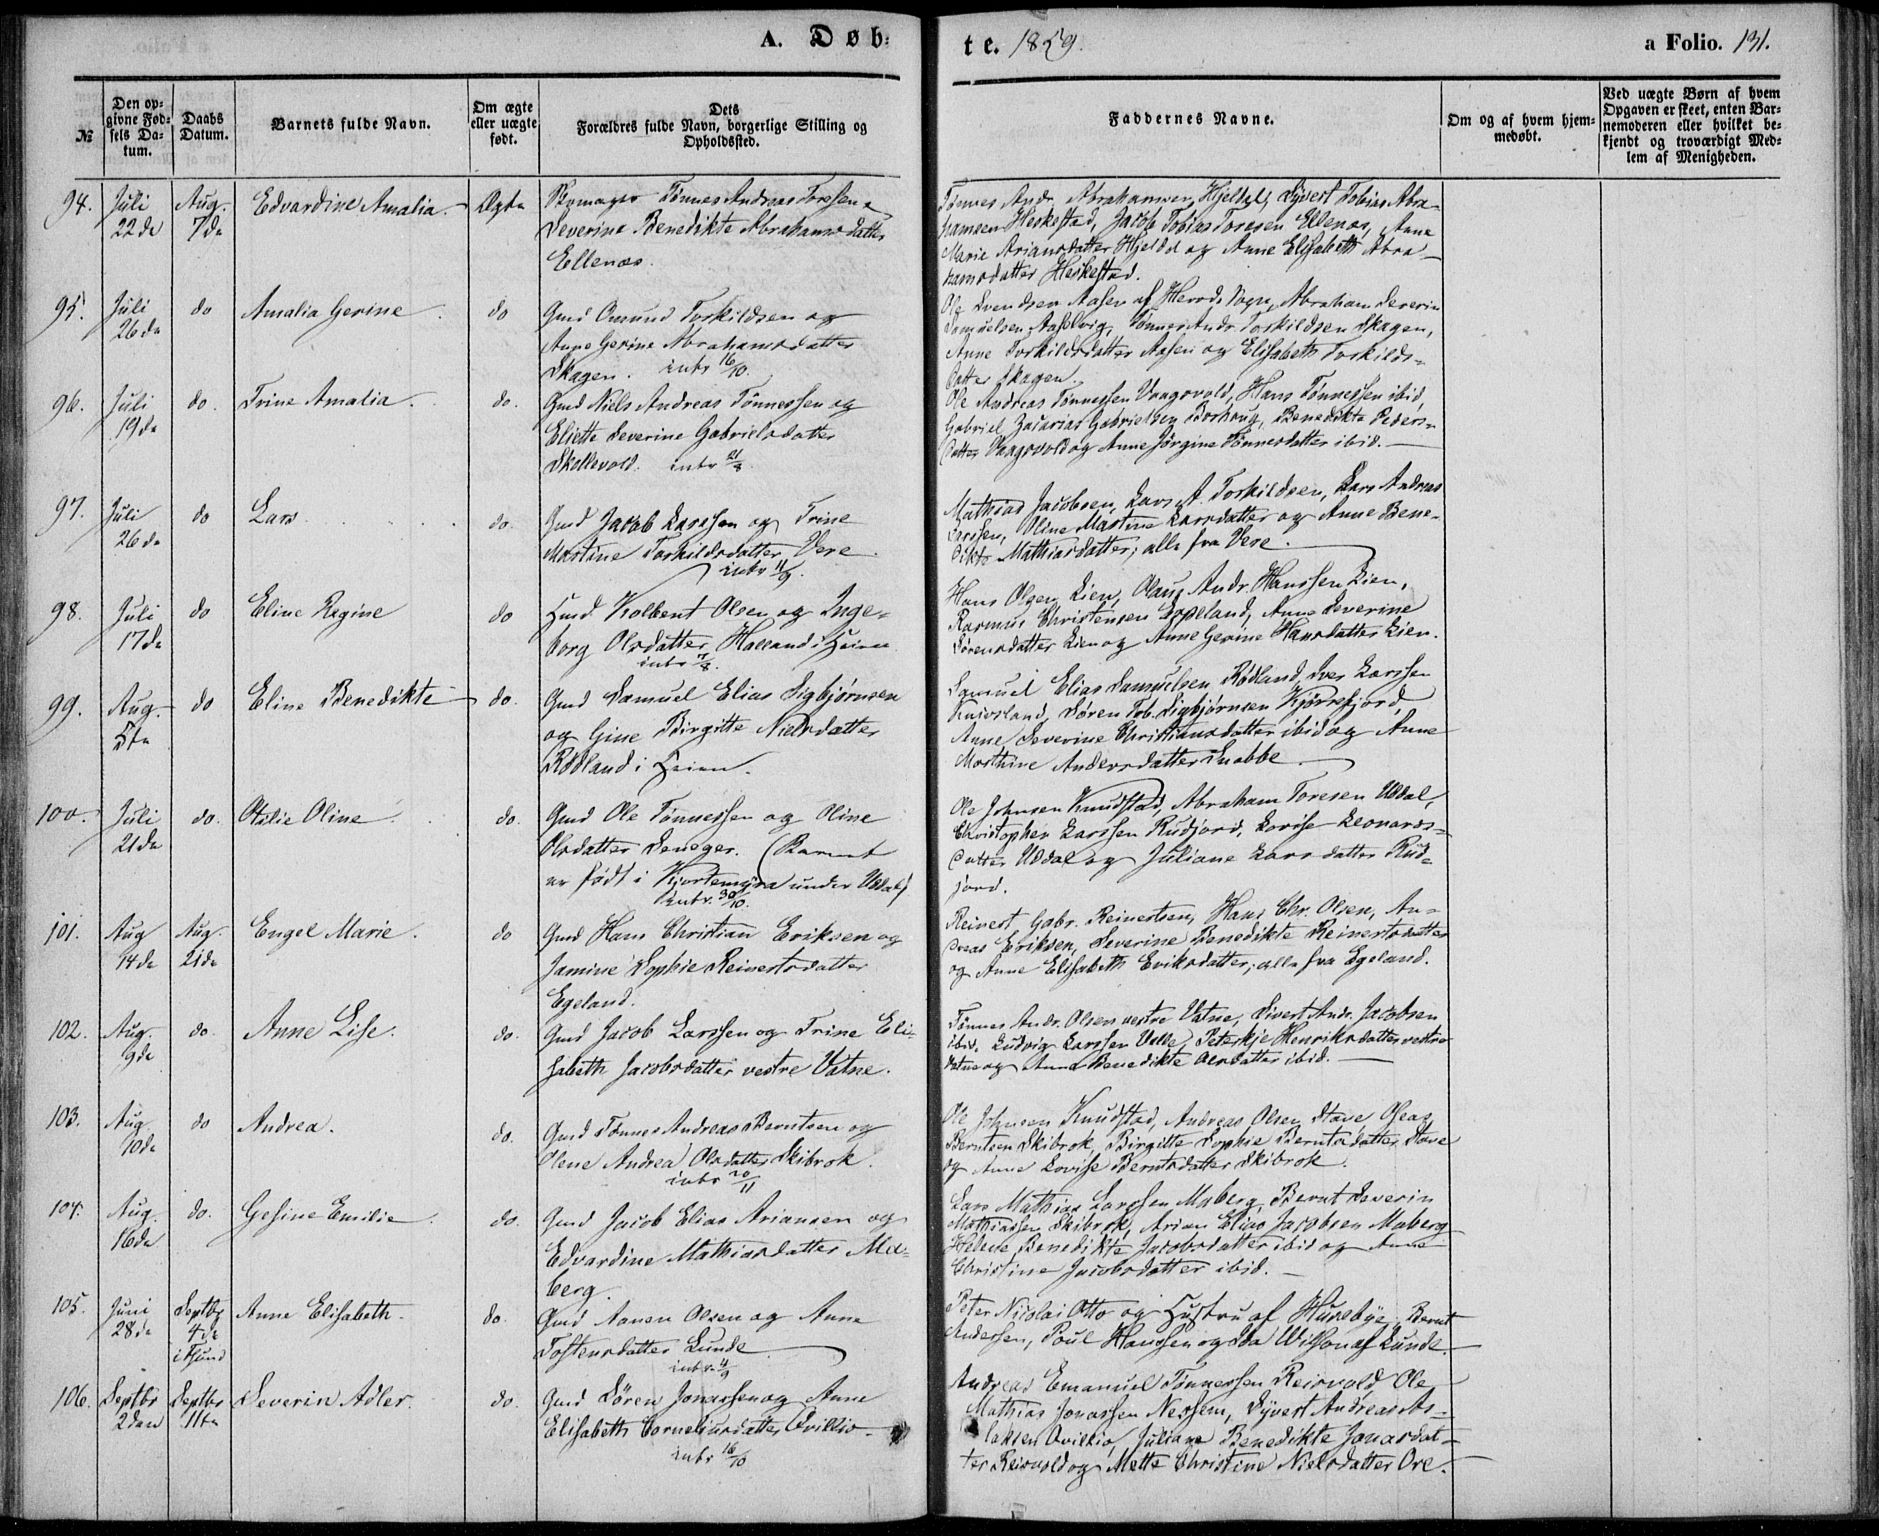 A. Døb-
te. 1859.
a Folio. 131.
№
Den op-
givne Fød-
sels Da-
tum.
Daabs
Datum.
Barnets fulde Navn.
Om ægte
eller uægte
født.
Dets
Forældres fulde Navn, borgerlige Stilling og
Opholdssted.
Faddernes Navne.
Om og af hvem hjem-
medøbt.
Ved uægte Børn af hvem
Opgaven er skeet, enten Bar-
nemoderen eller hvilket be-
kjendt og troværdigt Med-
lem af Menigheden.
94. Juli 22de Aug. 7de Edvardine Amalia. Ægte
Tønnes Andreas Toresen &
Severine Benedikte Abrahamsdatter
Ellenæs.
Tønnes Andr. Abrahamsen Hjeldel, Syvert Tobias Abra-
hamsen Heskestad, Jacob Tobias Toresen Ellenæs, Anne
Marie Ariansdatter Hjeldel og Anne Elisabeth Abra-
hamsdatter Heskestad.
95. Juli 26de do Amalia Gerine do
Gmd Omund Torkildsen og
Anne Gerine Abrahamsdatter
Skagen. intr 16/10.
Ole Svendsen Aasen af Herreds Sogn, Abraham Severin
Samuelsen, Tønnes Andr. Torkildsen Skagen,
Anne Torkildsdatter Aasen og Elisabeth Torkilds-
datter Skagen.
96. Juli 19de do. Trine Amalia. do.
Gmd Niels Andreas Tønnessen og
Eliette Severine Gabrielsdatter
Skollevold. intr
Ole Andreas Tønnessen Vaagsvold, Hans Tønnessen ibid,
Gabriel Zacarias Gabrielsen, Benedikte Peders-
datter Vaagsvold og Anne Jørgine Tønnesdatter ibid.
97. Juli 26de do Lars do.
Gmd Jacob Larssen og Trine
Martine Torkildsdatter Vere.
intr 11/9.
Mathias Jacobsen, Lars A. Torkildsen, Lars Andreas
Larssen, Oline Martine Larsdatter og Anne Bene-
dikte Mathiasdatter, alle fra Vere.
98. Juli 17de do Eline Regine do
Hmd Kolbent Olsen og Inge-
borg Olsdatter Halland i Heien
intr 7/8.
Hans Olsen Lien, Olaus Andr. Hanssen Lien,
Rasmus Christensen Eppeland, Anne Severine
Sørensdatter Lien og Anne Gerine Hansdatter Lien.
99. Aug. 5te do Eline Benedikte do.
Gmd Samuel Elias Sigbjørnsen
og Gine Birgitte Nielsdatter
Rødland i Heien.
Samuel Elias Samuelsen Rødland, Iver Larssen
Søren Tob. Sigbjørnsen Kjørrefjord,
Anne Severine Christiansdatter ibid og Anne
Marthine Andersdatter Snobbe
100. Juli 21de do. Otilie Oline do.
Gmd Ole Tønnessen og Oline
Olsdatter Seneger. (Barnet
er født i Kjortemyra under Uddal)
intr. 30/10.
Ole Johnsen Knudstad, Abraham Toresen Uddal,
Christopher Larssen Rudjord, Lovise Leonards-
datter Uddal og Juliane Larsdatter Rud-
jord.
101. Aug 14de Aug. 21de Engel Marie. do
Gmd Hans Christian Eriksen og
Jamine Sophie Reinertsdatter
Egeland.
Reinert Gabr. Reinertsen, Hans Chr. Olsen, An-
dreas Eriksen, Severine Benedikte Reinertsdatter
og Anne Elisabeth Eriksdatter, alle fra Egeland.
102. Aug. 9de do. Anne Lise. do.
Gmd Jacob Larssen og Trine Eli-
sabeth Jacobsdatter vestre Vatne.
Tønnes Andr. Olsen vestre Vatne, Sivert Andr. Jacobsen
ibid. Ludvig Larssen Velle, Peterkje Henriksdatter vestre
Vatne og Anne Benedikte Olsdatter ibid.
103. Aug 10de do Andrea. do.
Gmd Tønnes Andreas Berntsen og
Olene Andrea Olsdatter Skibrok.
intr 20/11
Ole Johnsen Knudstad, Andreas Olsen Stave, Oleas
Berntsen Skibrok, Birgitte Sophie Berntsdatter Stave
og Anne Lovise Berntsdatter Skibrok.
104. Aug. 16de do. Gesine Emilie do.
Gmd Jacob Elias Ariansen og
Edvardine Mathiasdatter Ma-
berg.
Lars Mathias Larssen Maberg, Bernt Severin
Mathiassen Skibrok, Arian Elias Jacobsen Maberg
Helene Benedikte Jacobsdatter ibid og Anne
Christine Jacobsdatter ibid.
105. Juni 28de Septbr 4de i Fsund Anne Elisabeth. do.
Gmd Aanen Olsen og Anne
Tostensdatter Lunde
intr. 4/9
Peter Nicolai Otto og Hustru af Husebye, Bernt
Andersen, Poul Hanssen og Ida Wilson af Lunde.
106. Septbr 2den Septbr 11te Severin Adler. do.
Gmd Sören Jonassen og Anne
Elisabeth Corneliusdatter Qvillio
intr 16/10
Andreas Emanuel Tønnessen Reirvold, Ole
Mathias Jonassen Nessem, Syvert Andreas As-
laksen Qvillio, Juliane Benedikte Jonasdat-
ter Reirvold og Mette Christine Nielsdatter Ore.